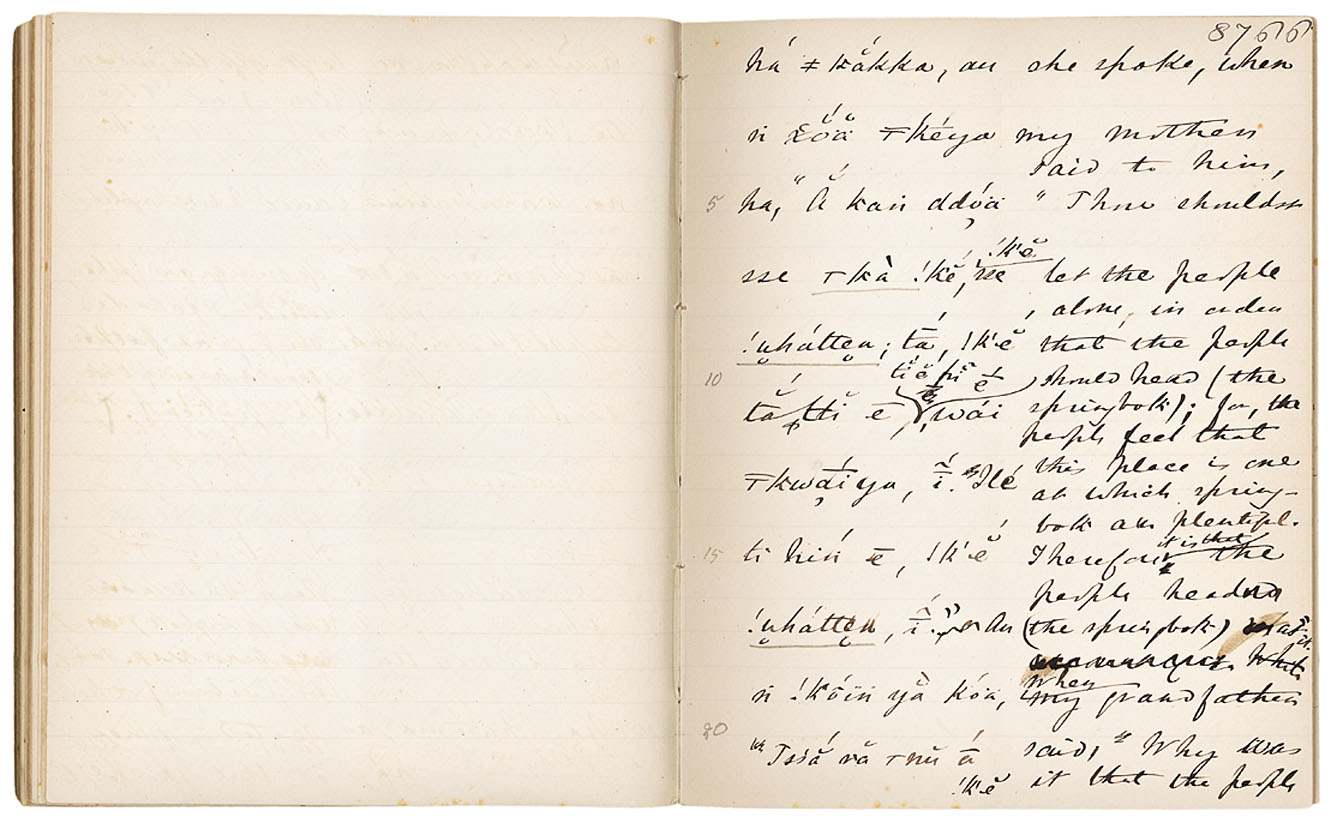 8766
há ǂkắkka, au she spoke, when
ṅ x̆óä ǂkéya my mother
said to him,
5 ha, "Ă kaṅ ddóä "Thou shouldst
!k'ĕ
sse ǂkà !k'é, sse let the people
alone, in order
!uhátten; tā, !k'ĕ that the people
10 should head (the
tắ tti ē wái springbok); for, the
people feel that
ǂkwaíya, ī. Ilé this place is one
at which spring-
bok are plentiful.
15 ti hiṅ ē, !k'ĕ Therefore it is that the
people head
!uhátten, ī. au (the springbok) at it.
When
ṅ !kóiṅ yắ kóa, my grandfather
20 "Tssá rä ǂnŭ á said, "Why was
!k'ĕ it that the people